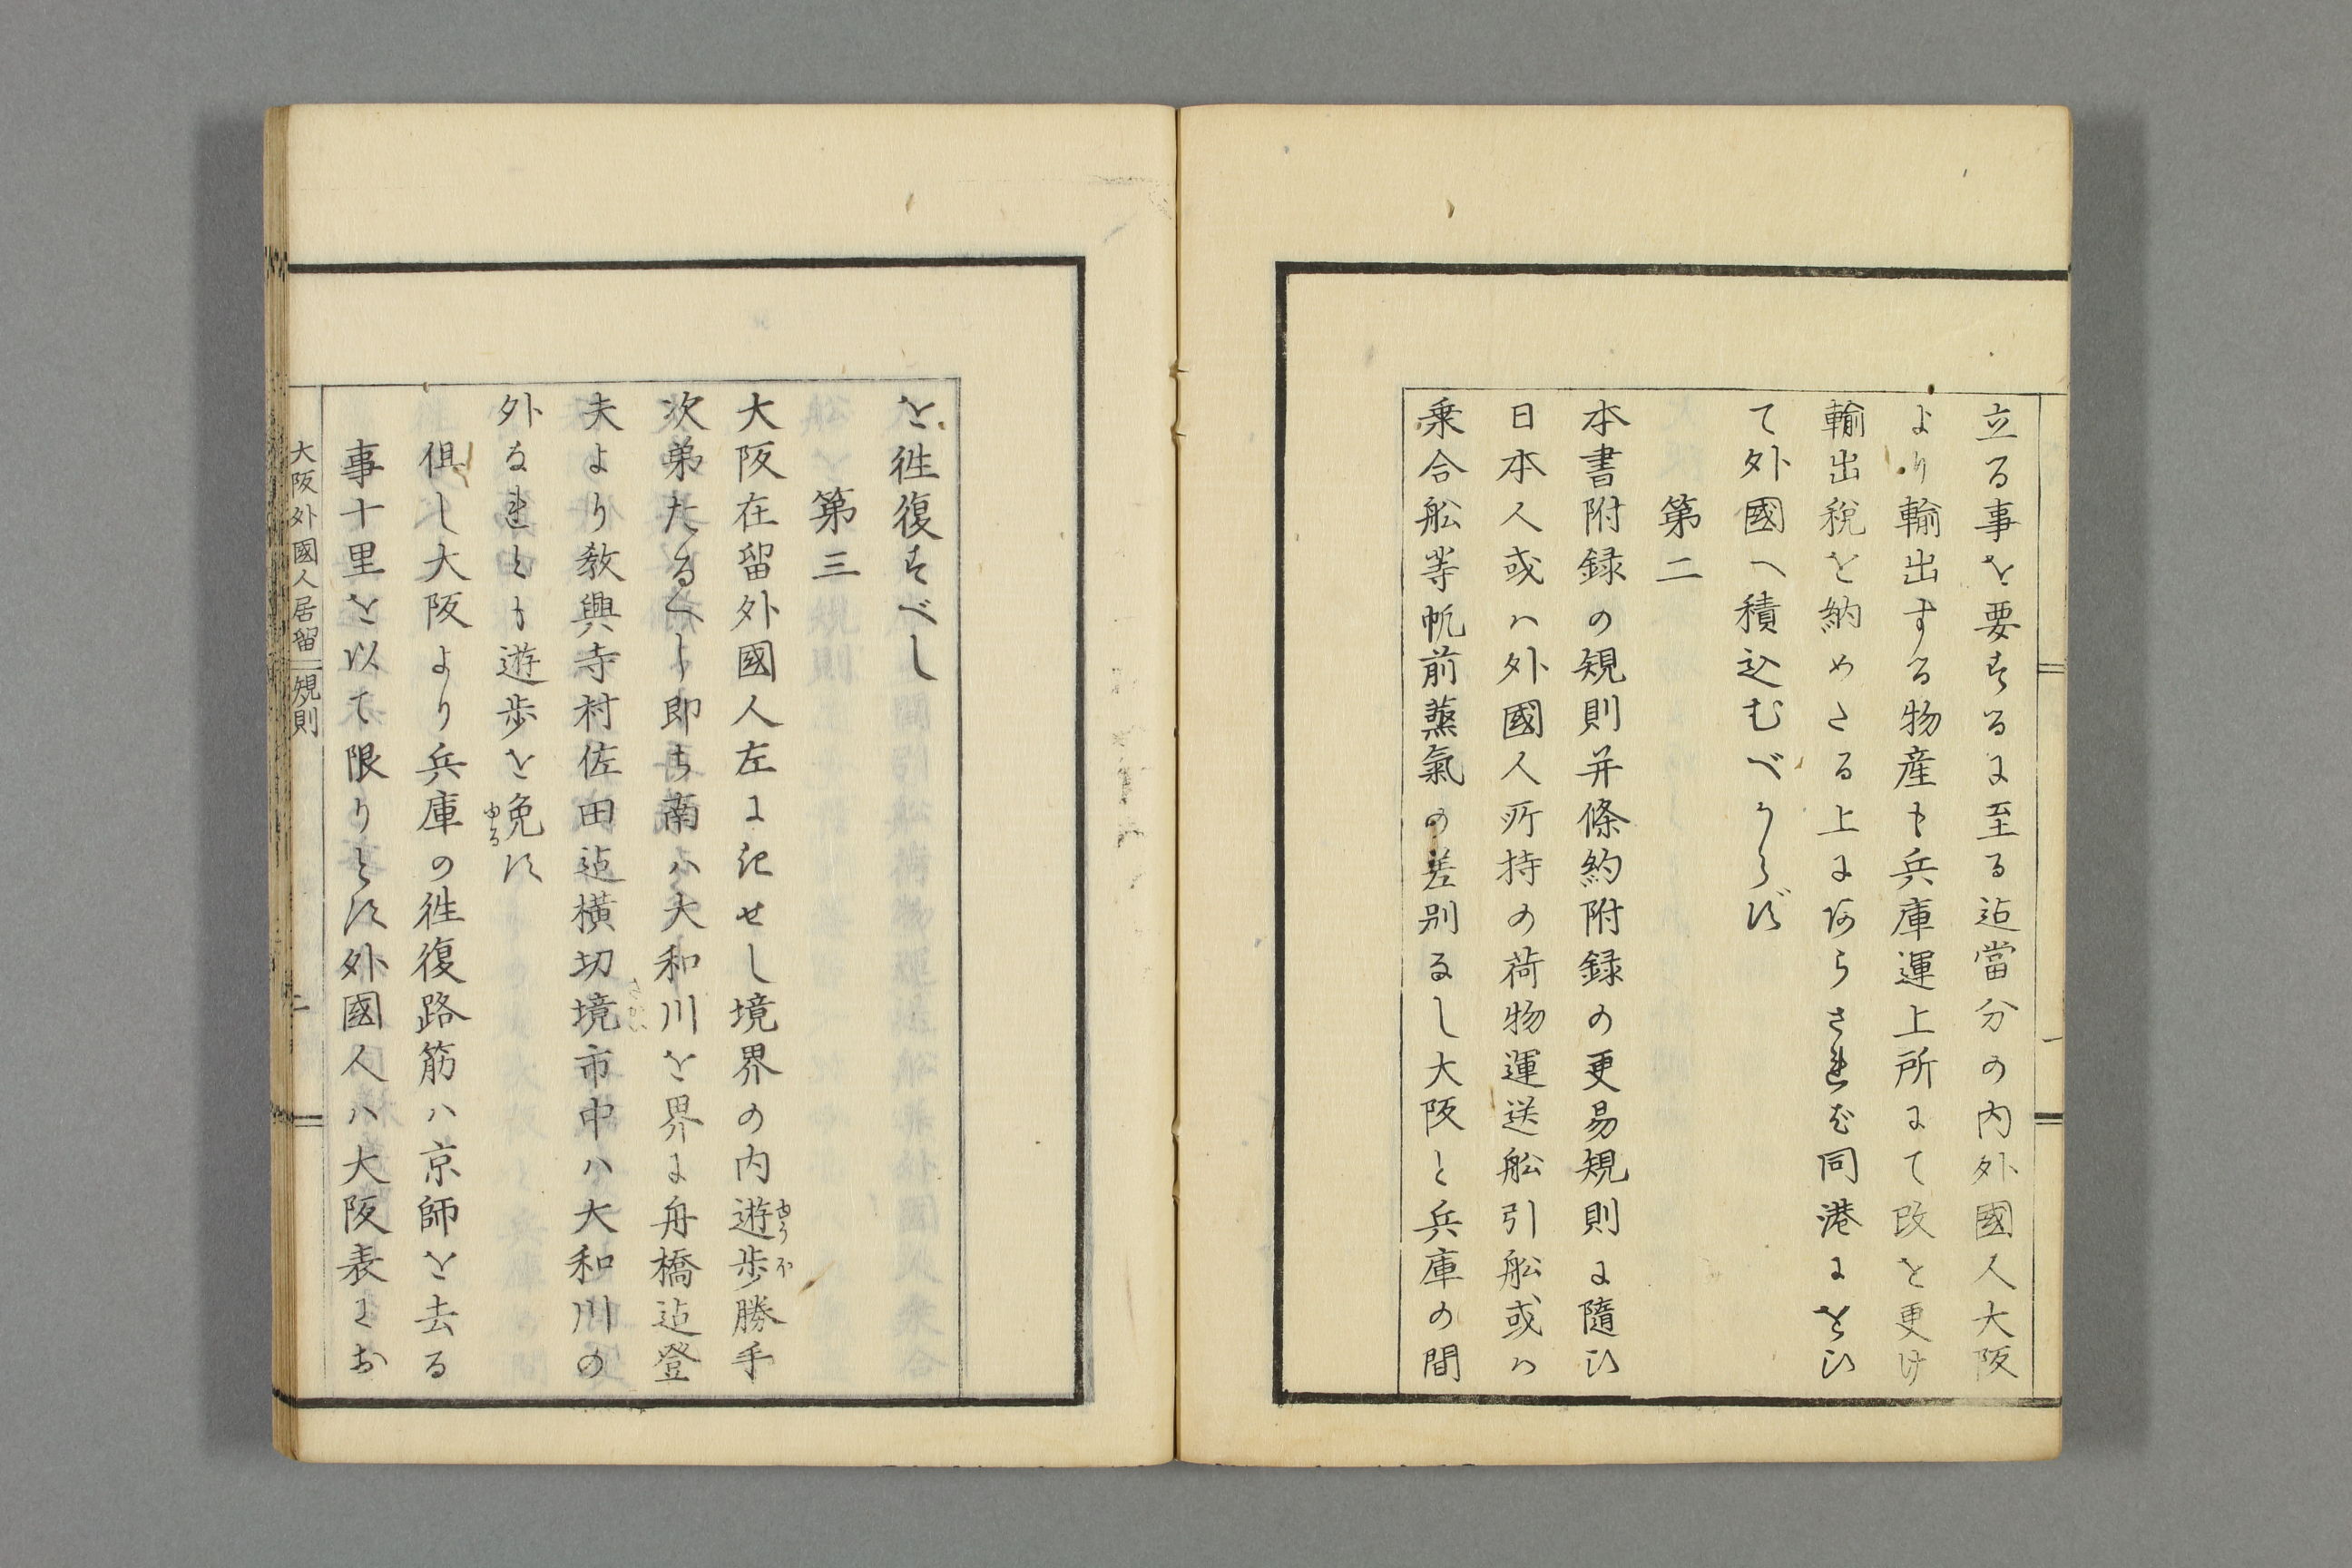 立る事を要するに至る迠當分の内外國人大阪
より輸出する物産も兵庫運上所にて改を更け
輸出税を納めさる上にあらされば同港にをひ
て外國へ積込むべからず
第二
本書附録の規則并條約附録の更易規則に隨ひ
日本人或ハ外國人所持の荷物運送舩引舩或ハ
乗合舩等帆前蒸氣の差別なし大阪と兵庫の間
を徃復すべし
第三
大阪在留外國人左に記せし境界の内遊歩勝手
ゆうほ
次第たるべし即ち南ハ大和川を界に舟橋迠登
夫より教興寺村佐田迠横切境市中ハ大和川の
さかい
外なれとも遊歩を免す
ゆる
但し大阪より兵庫の徃復路筋ハ京師を去る
事十里を以て限りとす外國人ハ大阪表にお
大阪外國人居留規則
二